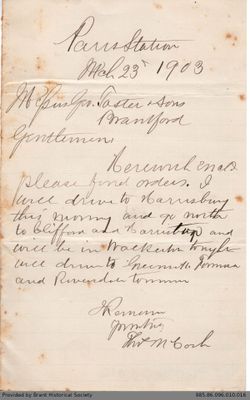 Paris Station
Mch 23rd 1903
Messrs Geo. Foster & Sons
Brantford
Gentlemen
Herewith
please find orders. I
will drive to Harrisburg
this morning and go north
to Clifford and Harriston and
will be in Walkerton tonight
will drive to Formosa
and
I Remain
Yours
Provided by Brant Historical Society
885.86.096.010.016